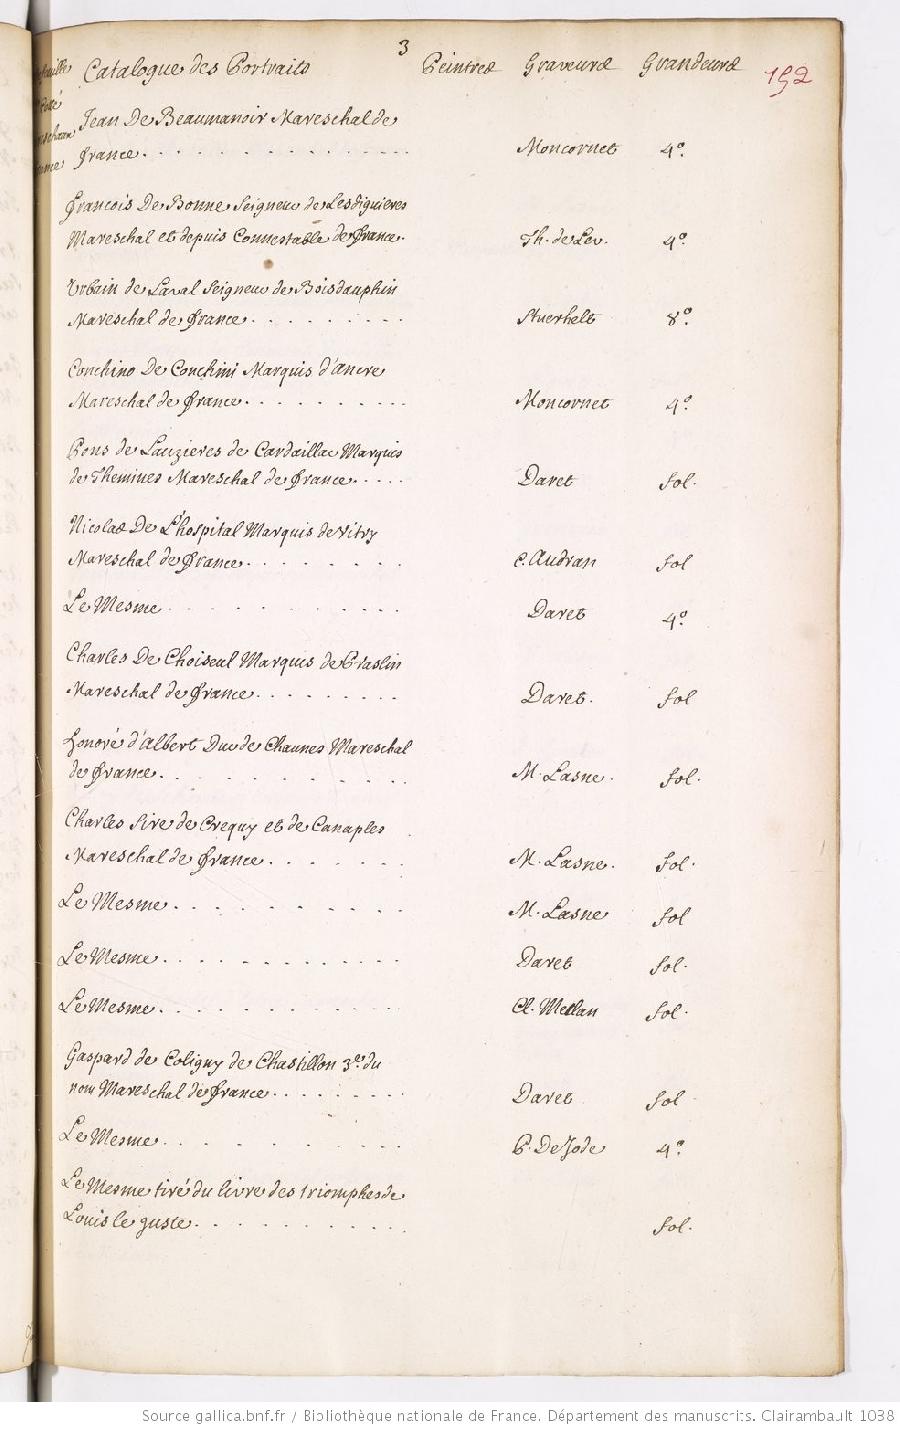 3
Catalogue des Portraits Peintres Graveurs Grandeurs 192
Jean De Beaumanoir Mareschal de
france. . . . . . . . . . . . . . . Moncornet 4°.
francois De Bonne Seigneur de Lesdiguieres
Mareschal et depuis Connestable de france. Th. de Leu. 4°.
Urbain de Laval Seigneur de Boisdauphin
Mareschal de france . . . . . . . . . Stuerhelt 8°.
Conchino De Conchini Marquis d'ancre
Mareschal de france. . . . . . . . . . Moncornet 4°.
Pons de Lauzieres de Cardaillac Marquis
de Themines Mareschal de france. . . . . Daret fol.
Nicolas De L'hospital Marquis de Vitry
Mareschal de france. . . . . . . . C. Audran fol
Le Mesme . . . . . . . . Daret 4°.
Charles De Choiseul Marquis de Praslin
Mareschal de france. . . . . . . . . Daret. fol
honoré d'Albert Duc de Chaunes Mareschal
de france. . . . . . . . . M. Lasne. fol.
Charles Sire de Crequy et de Canaples
Mareschal de france. . . . . . . M. Lasne. fol.
Le Mesme. . . . . . . . . M. Lasne fol
Le Mesme. . . . . . . . . . . . Daret fol.
Le Mesme. . . . . . . . . . . . Cl. Mellan fol.
Gaspard de Coligny de Chastillon 3.e du
nom Mareschal de france. . . . . . . . . Daret fol
Le Mesme. . . . . . . . . P. De Jode 4°.
Le Mesme tiré du livre des triomphes de
Louis le juste. . . . . . . . . . . . fol.
Source gallica.bnf.fr / Bibliothèque nationale de France. Département des manuscrits. Clairambault 1038